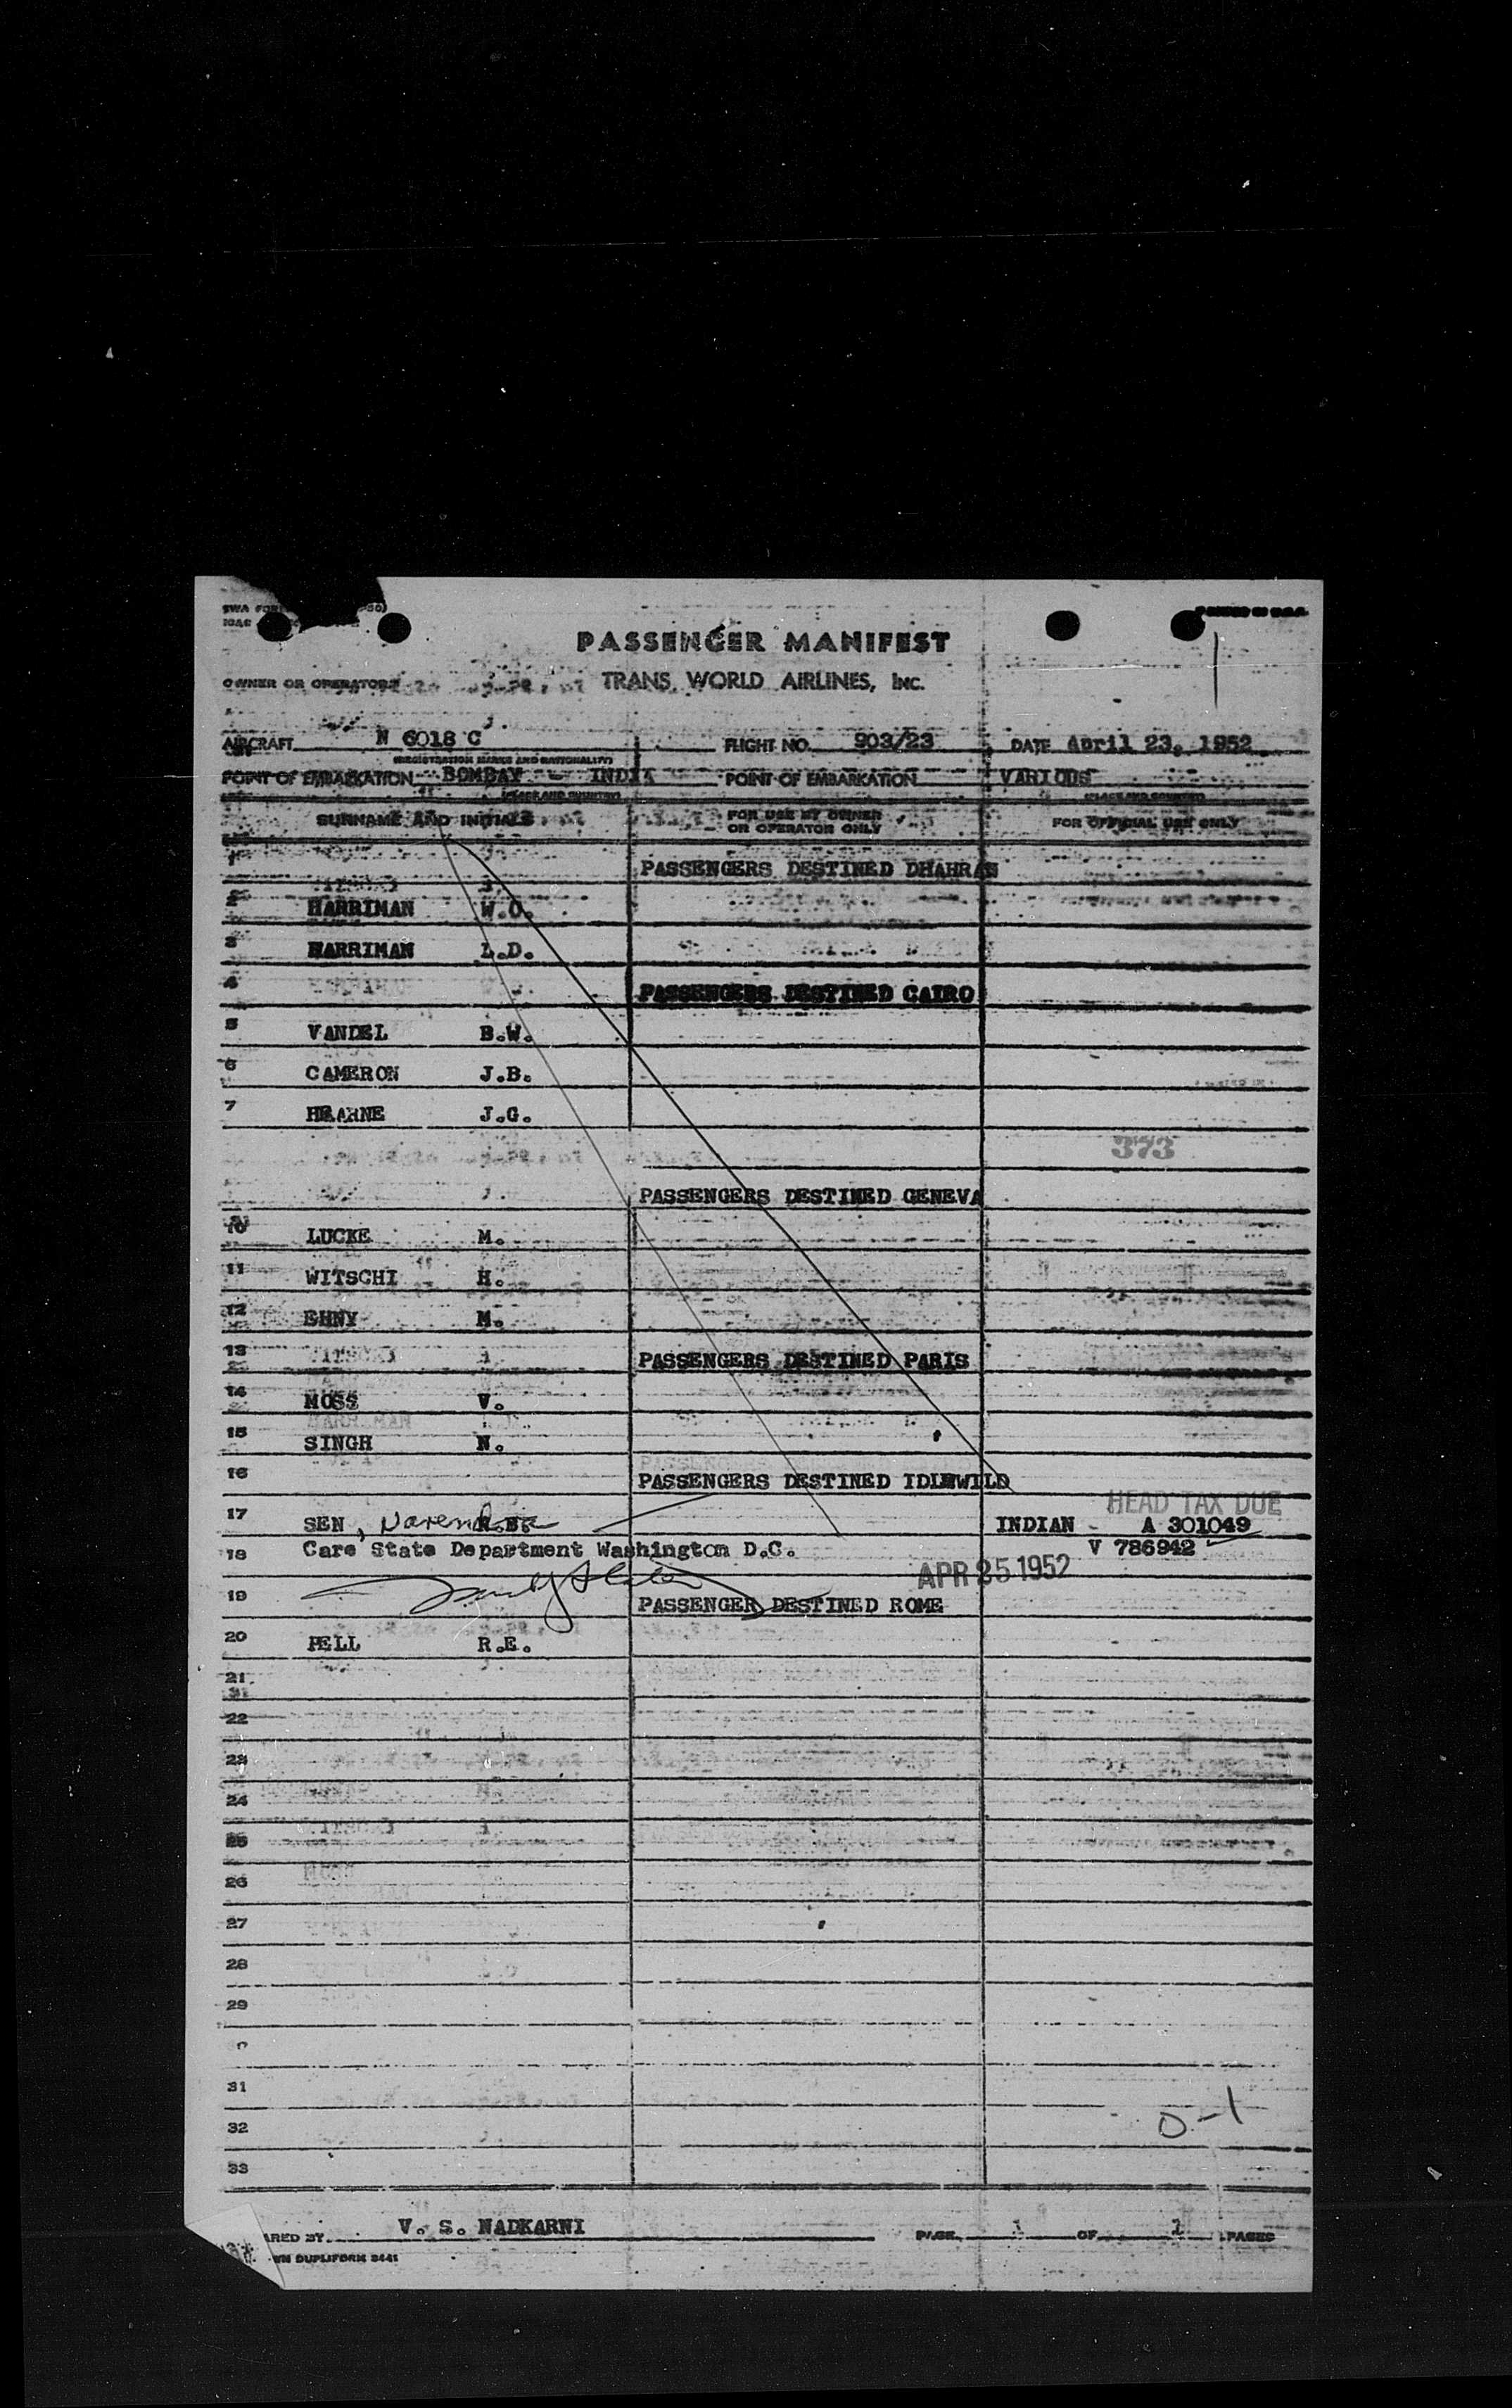 PASSENGER MANIFEST
OWNER OR OPERATOR TRANS WORLD AIRLINES, INC.
AIRCRAFT N 6018 C FLIGHT NO. 903/23 DATE April 23, 1952
(REGISTRATION MARKS AND NATIONALITY)
POINT OF EMBARKATION BOMBAY - INDIA POINT OF EMBARKATION VARIOUS
(PLACE AND COUNTRY) (PLACE AND COUNTRY)
SURNAME AND INITIALS FOR USE BY OWNER OR OPERATOR ONLY FOR OFFICIAL USE ONLY
1 PASSENGERS DESTINED DHAHRAN
2 HARRIMAN W.O.
3 HARRIMAN L.D.
4 PASSENGERS DESTINED CAIRO
5 VANDEL B.W.
6 CAMERON J.B.
7 HEARNE J.G.
373
PASSENGERS DESTINED GENEVA
10 LUCKE M.
11 WITSCHI H.
12 EHNY M.
13 PASSENGERS DESTINED PARIS
14 MOSS V.
15 SINGH N.
16 PASSENGERS DESTINED IDLEWILD
HEAD TAX DUE
17 SEN, INDIAN - A 301049
18 Care State Department Washington D.C. V 786942
APR 25 1952
19 PASSENGER DESTINED ROME
20 PELL R.E.
21
22
23
24
25
26
27
28
29
31
32
0-1
33
ARED BY V. S. NADKARNI PAGE 1 OF PAGES
DUPLIFORM 8441